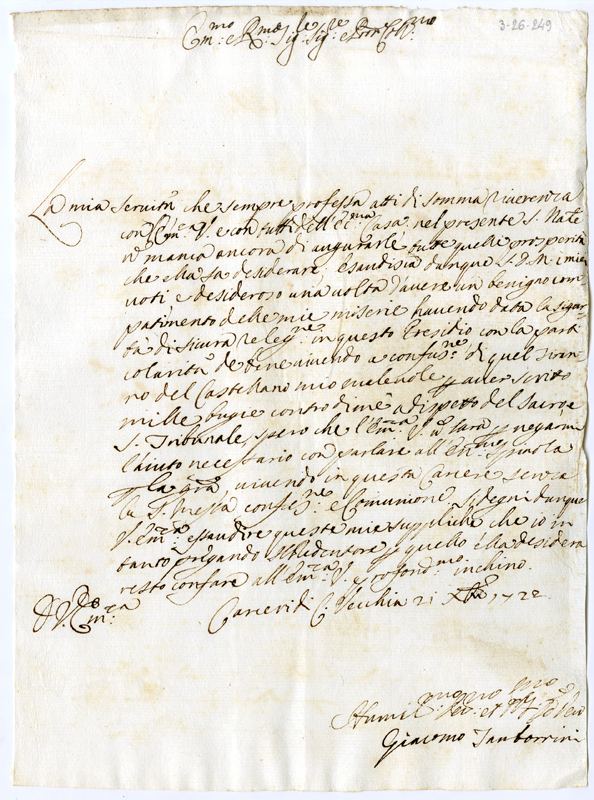 3-26-249
Em:mo e R:mo Sig:re Sig:re e Pron Col:mo
La mia servitù che sempre professa atti di somma riverenza
con l'Em:a V. e con tutti dell' Ecc:ma Casa, nel presente S. Nate
n manca ancora di augurarle tutte quelle prosperità
che ella sa desiderare, esaudisca dunque S. D. M. i miei
voti e desideroso una volta d'avere un benigno com
patimento delle mie miserie havendo data la sigur
tà di sicura releg:ne in questo Presidio con la parti
colarità de bene vivendo a confus:ne di quel
no del Castellano mio malevole p aver scritto
mille bugie contro di me a dispetto del Sacro
S. Tribunale, spero che l'Em:za V. n sarà p negarmi
l'aiuto necessario con parlare all' Em:mo Spinola
p la gra, vivendo in questa Carcere senza
la S. Messa confes:ne e Comunione, si degni dunque
V. Em:za esaudire queste mie suppliche che io in
tanto pregando il Redentore p quello ella desidera
resto con fare all' Em:za V. profond:mo inchino.
D V. Em:za
Carceri di C. Vecchia 21 Xbre 1722
Humil:mo Dev:mo et Obl:mo Servo
Giacomo Tamborrini